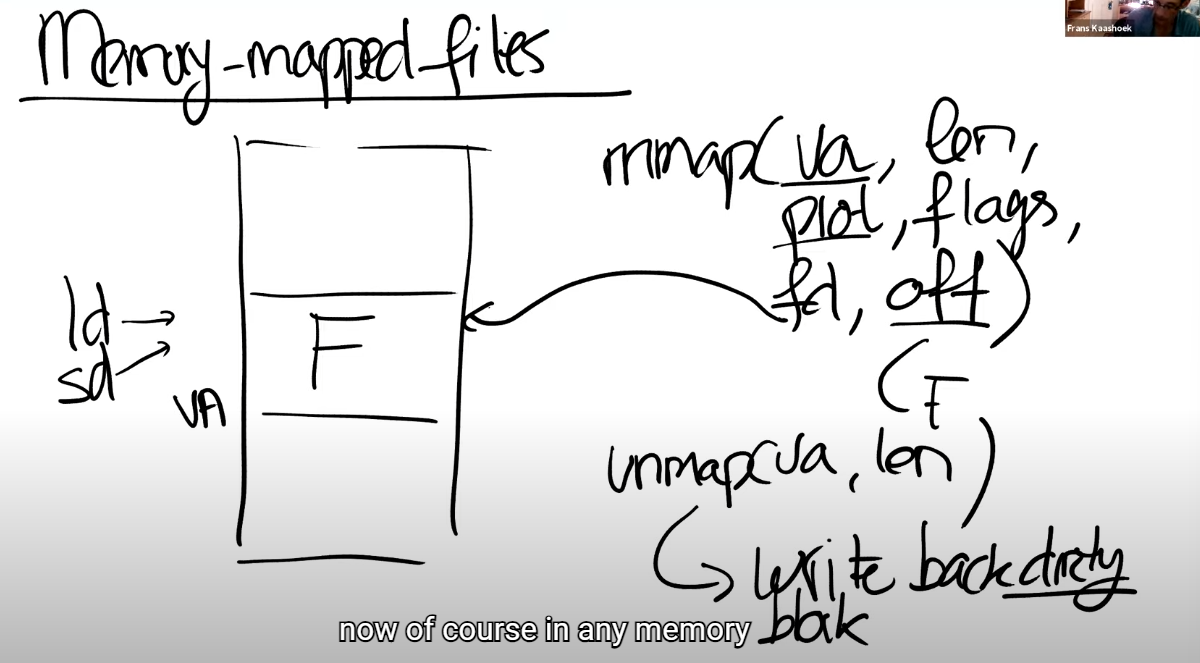 Frans Kaashoek
Memory-mapped files
mmap(va, len,
prot, flags,
fd, off)
ld →
F
sd →
VA
( F
unmap(va, len)
↳ write back dirty
block
now of course in any memory